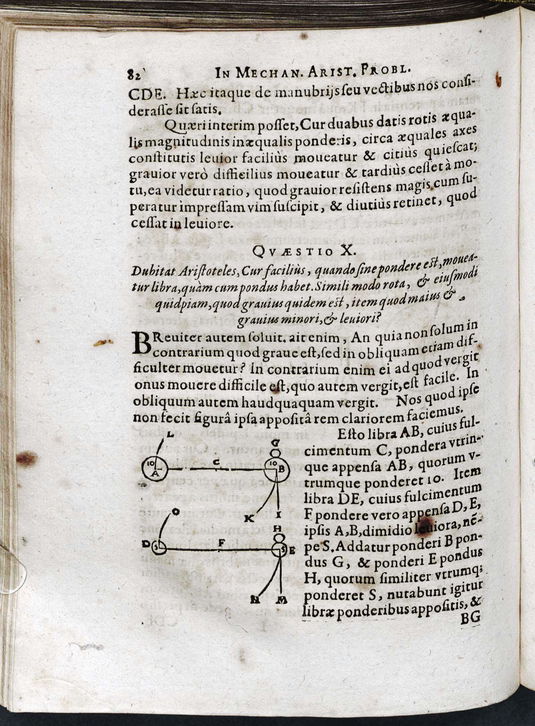 82 IN MECHAN. ARIST. PROBL.
CDE. Hæc itaque de manubrijs seu vectibus nos consi-
derasse sit satis.
Quæri interim posset, Cur duabus datis rotis æqua-
lis magnitudinis inæqualis ponderis, circa æquales axes
constitutis leuior facilius moueatur & citius quiescat;
grauior verò difficilius moueatur & tardius cesset à mo-
tu, ea videtur ratio, quod grauior resistens magis, cum su-
peratur impressam vim suscipit, & diutius retinet, quod
cessat in leuiore.
QVÆSTIO X.
Dubitat Aristoteles, Cur facilius, quando sine pondere est, mouea-
tur libra, quàm cum pondus habet. Simili modo rota, & eiusmodi
quidpiam, quod grauius quidem est, item quod maius &
grauius minori, & leuiori?
BReuiter autem soluit. ait enim, An quia non solum in
contrarium quod graue est, sed in obliquam etiam dif-
ficulter mouetur? In contrarium enim ei ad quod vergit
onus mouere difficile est, quo autem vergit, est facile. In
obliquum autem haudquaquam vergit. Nos quod ipse
non fecit figurâ ipsa appositâ rem clariorem faciemus.
Esto libra AB, cuius ful-
cimentum C, pondera vtrin-
que appensa AB, quorum v-
trumque ponderet 10. Item
libra DE, cuius fulcimentum
F pondere vero appensa D, E,
ipsis A, B, dimidio leuiora, nē-
pe S. Addatur ponderi B pon-
dus G, & ponderi E pondus
H, quorum similiter vtrumq;
ponderet S, nutabunt igitur
libræ ponderibus appositis, &
BG
L
10
A
C
G
10
B
K
I
O
D
F
H
E
N
M